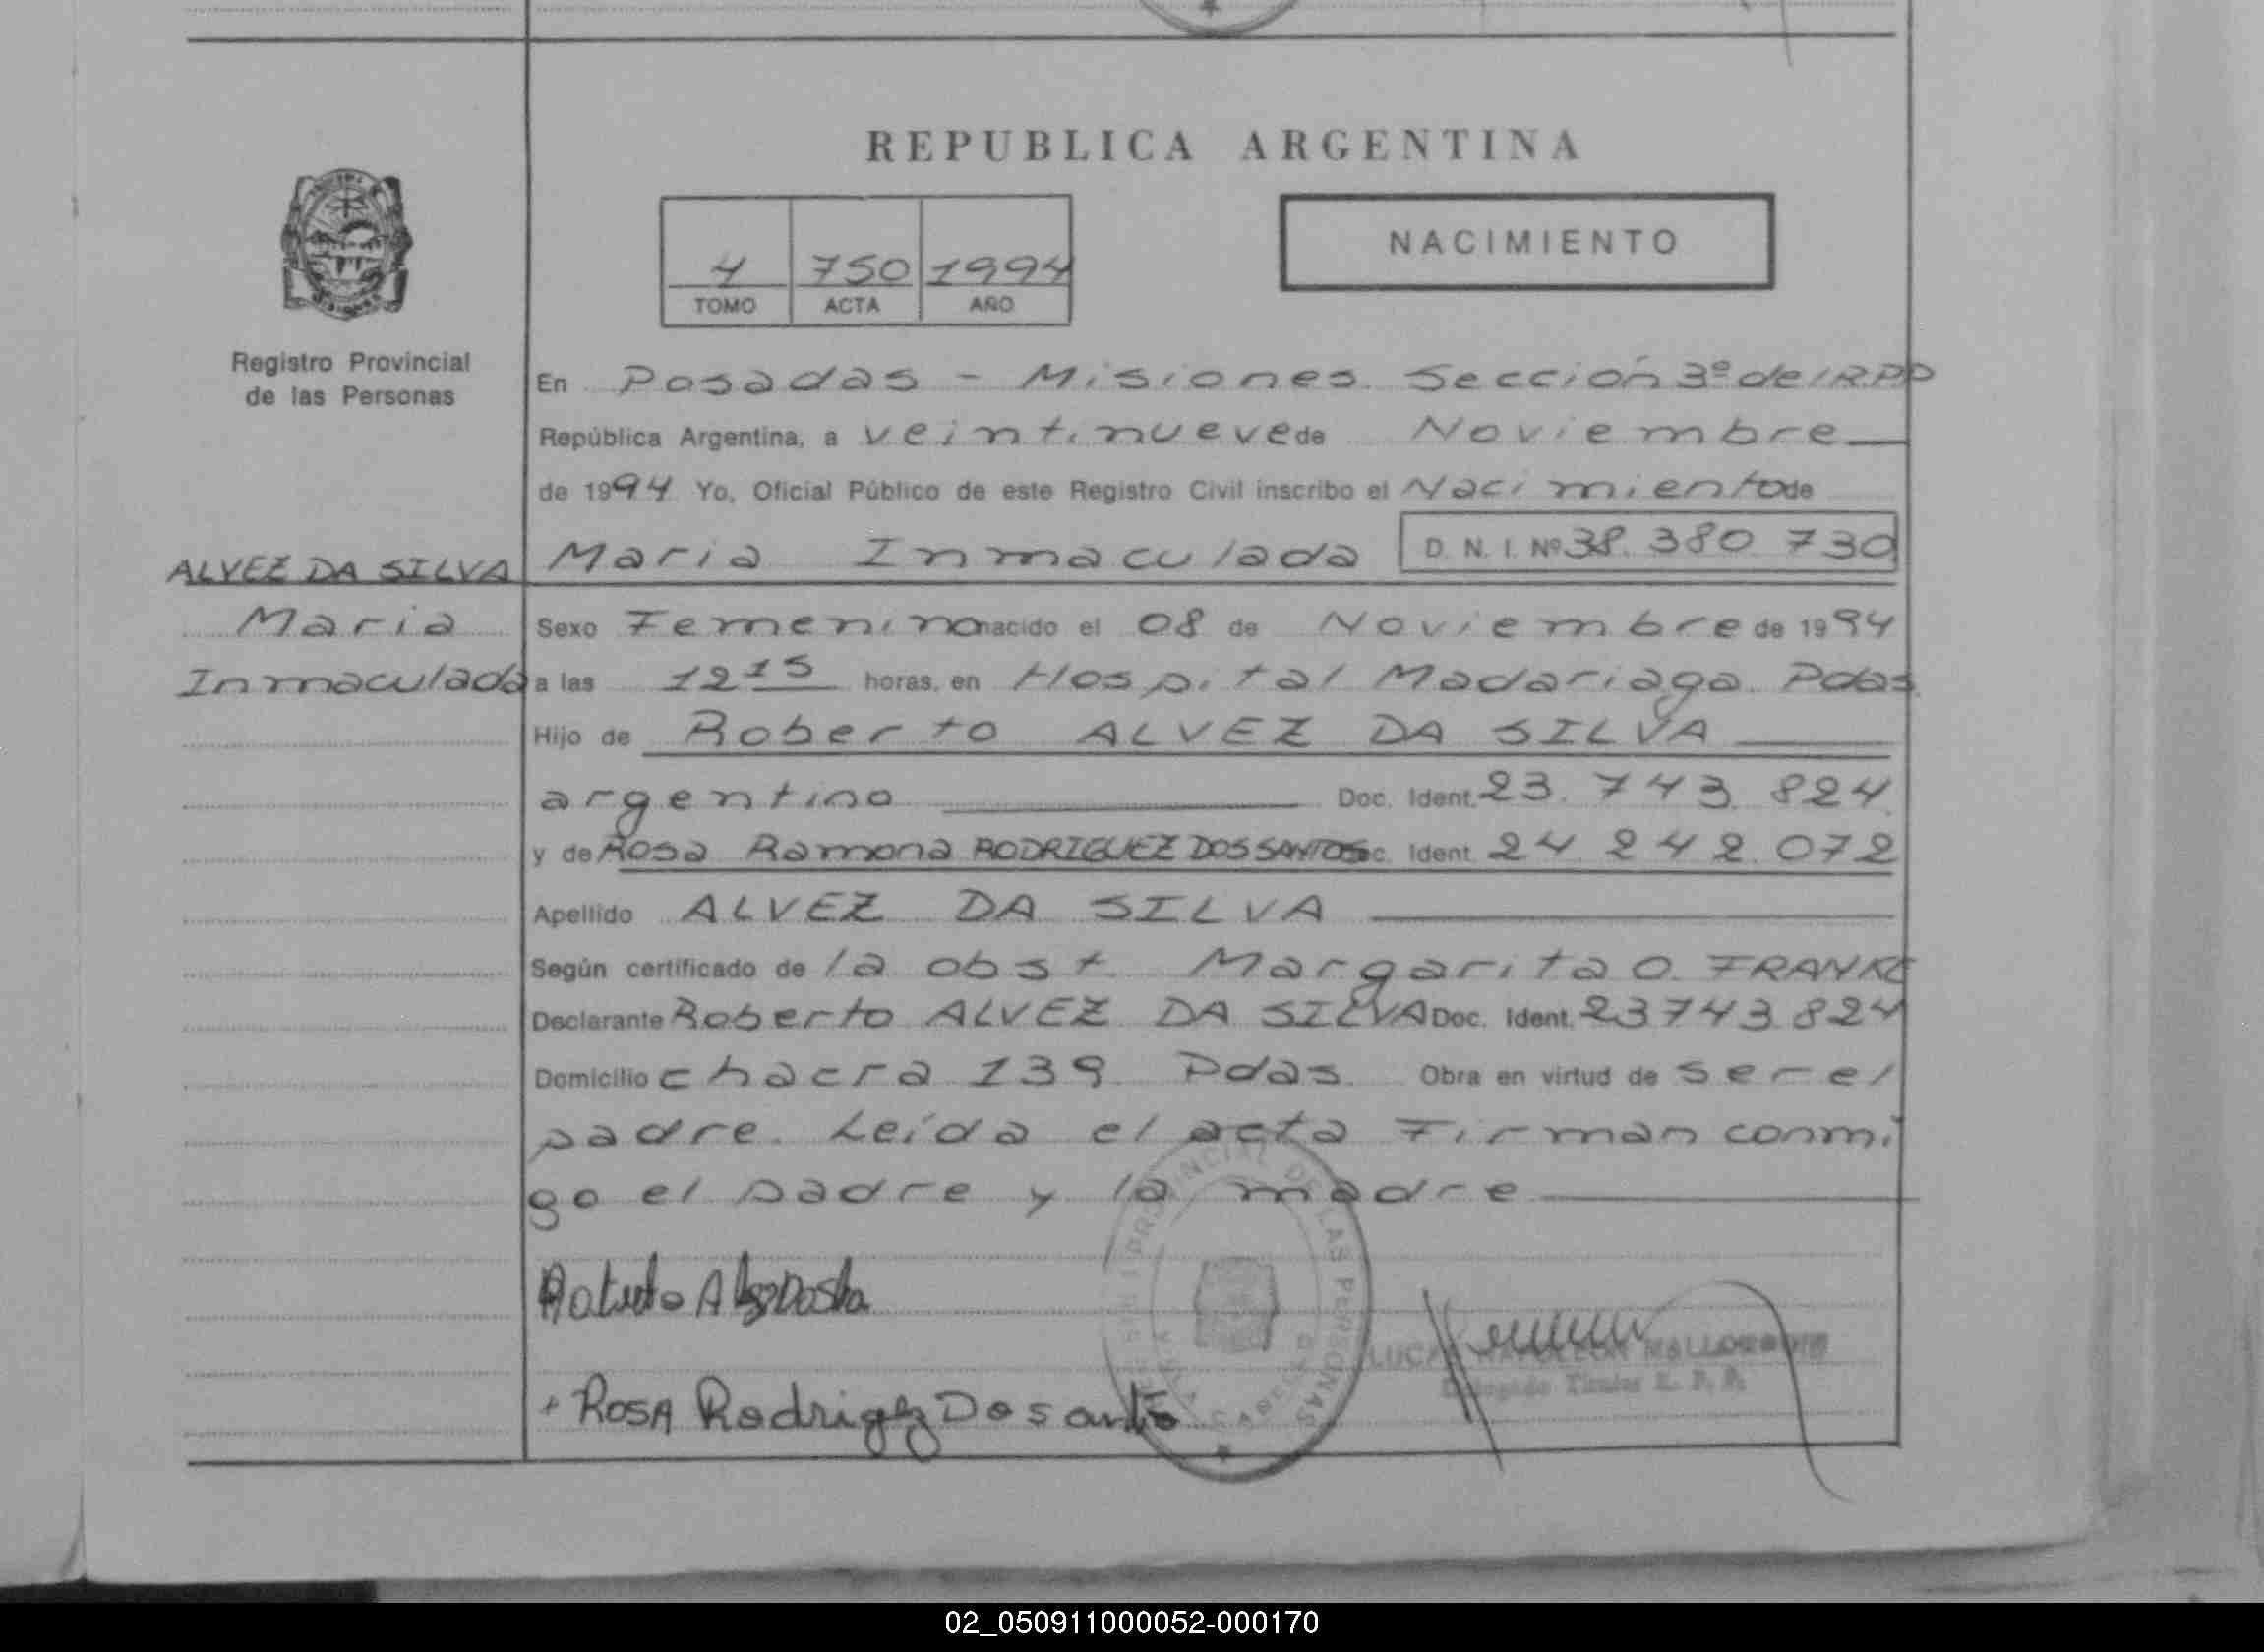 REPUBLICA ARGENTINA
4 750 1994
TOMO ACTA AÑO
NACIMIENTO
Registro Provincial
de las Personas
En Posadas - Misiones. Sección 3º del R.P.P
República Argentina, a veintinueve de Noviembre
de 1994 Yo, Oficial Público de este Registro Civil inscribo el Nacimiento de
ALVEZ DA SILVA
Maria
Inmaculada
Maria Inmaculada D. N. I. Nº 38. 380 730
Sexo Femenino nacido el 08 de Noviembre de 1994
a las 12 15 horas, en Hospital Madariaga Pdas
Hijo de Roberto ALVEZ DA SILVA
argentino Doc. Ident. 23. 743. 824.
y de Rosa Ramona RODRIGUEZ DOS SANTOS Doc. Ident 24 242. 072
Apellido ALVEZ DA SILVA
Según certificado de la obst. Margarita O. FRANKE
Declarante Roberto ALVEZ DA SILVA Doc. Ident. 23743.824
Domicilio chacra 139. Pdas. Obra en virtud de ser el
padre. Leída el acta Firman conmi
go el padre y la madre
ROSA Rodrigez Dosanto
PROVINCIAL DE LAS PERSONAS
02_050911000052-000170